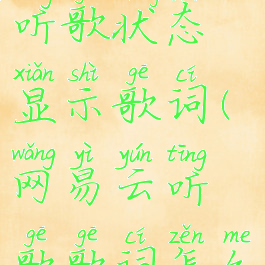 听歌状态
xiǎn shì gē cí
显示歌词(
wǎng yì yún tīng
网易云听
gē gē cí zěn me
歌歌词怎么